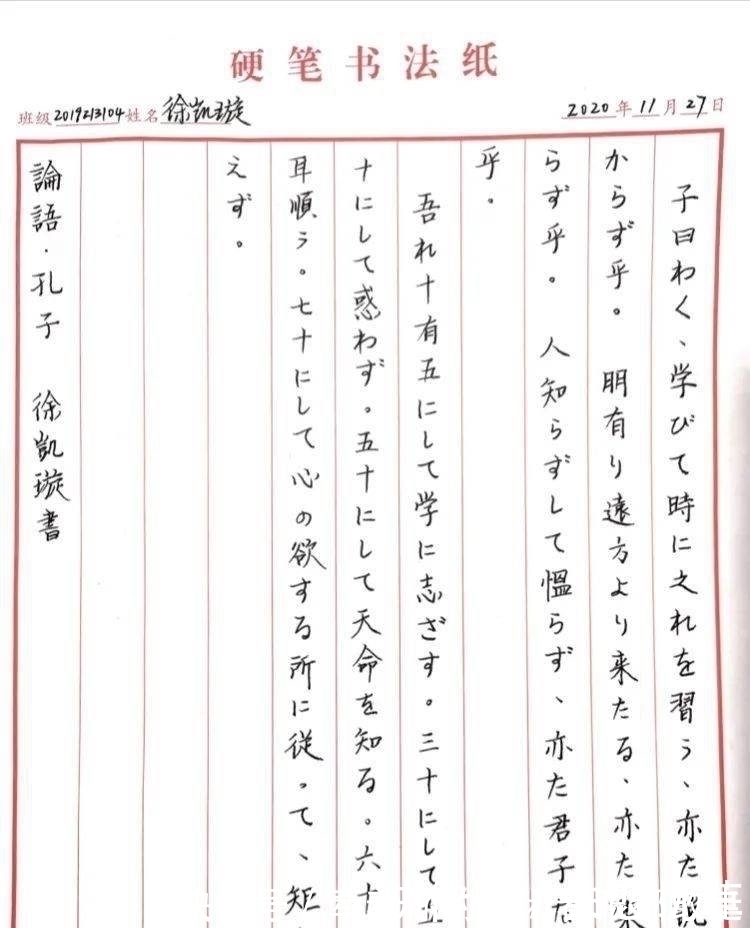 硬笔书法纸
班级 2019213104 姓名 徐凯璇 2020年11月27日
子曰わく、学びて時に之れを習う、亦た説
からず乎。 朋有り遠方より来たる、亦た
らず乎。 人知らずして慍らず、亦た君子た
乎。
吾れ十有五にして学に志ざす。三十にして
十にして惑わず。五十にして天命を知る。六十
耳順う。七十にして心の欲する所に従って、矩
えず。
論語·孔子 徐凱璇書